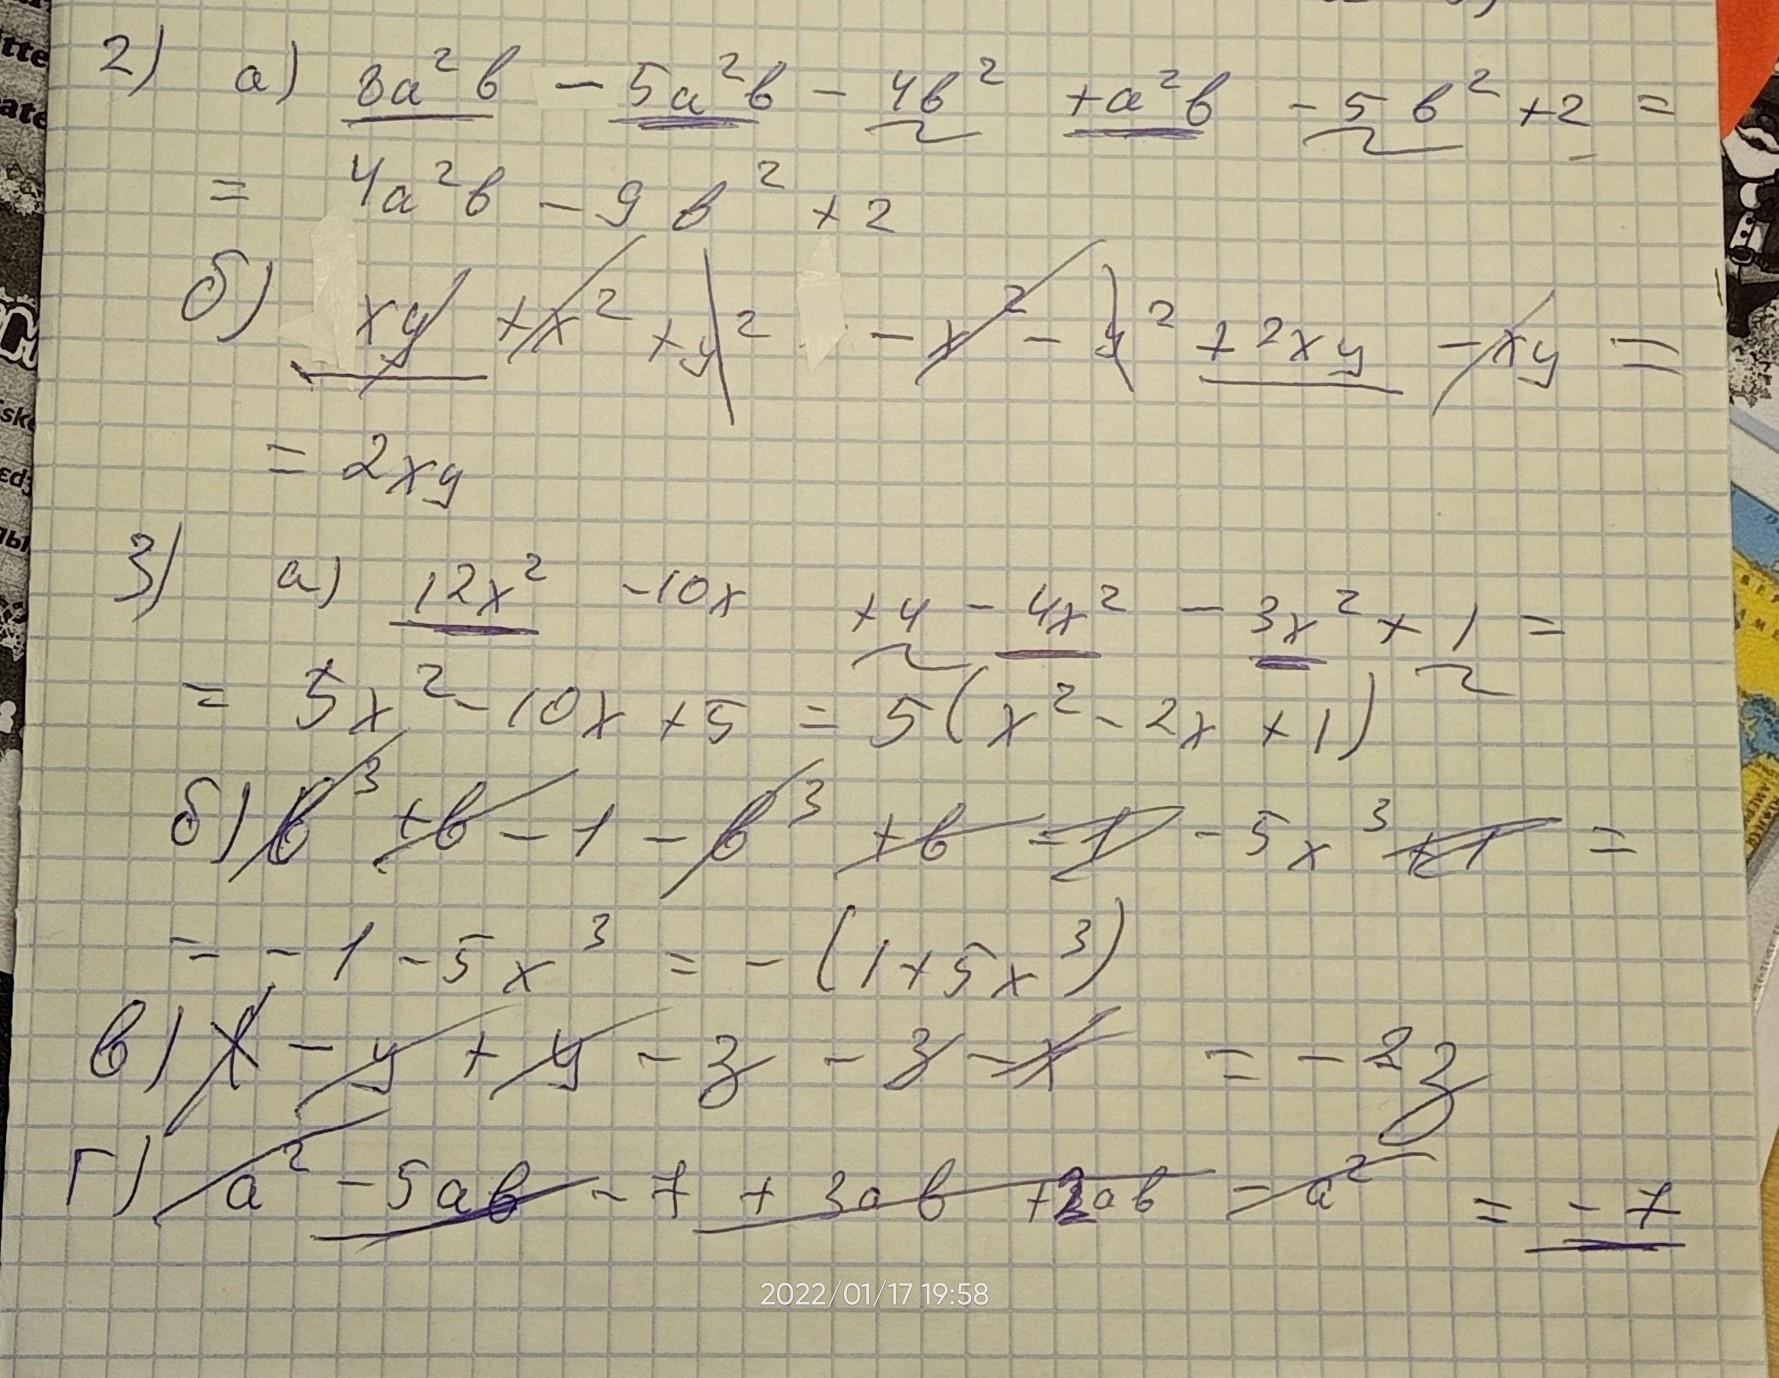 2) а) 8a²b - 5a²b - 4b² + a²b - 5b² + 2 =
= 4a²b - 9b² + 2
б) xy + x² + y² - x² - y² + 2xy - xy =
= 2xy
3) а) 12x² - 10x + 4 - 4x² - 3x² + 1 =
= 5x² - 10x + 5 = 5(x² - 2x + 1)
б) b³ + b - 1 - b³ + b - 1 - 5x³ + 1 =
= - 1 - 5x³ = - (1 + 5x³)
в) x - y + y - z - z - x = - 2z
г) a² - 5ab - 7 + 3ab + 2ab - a² = - 7
2022/01/17 19:58